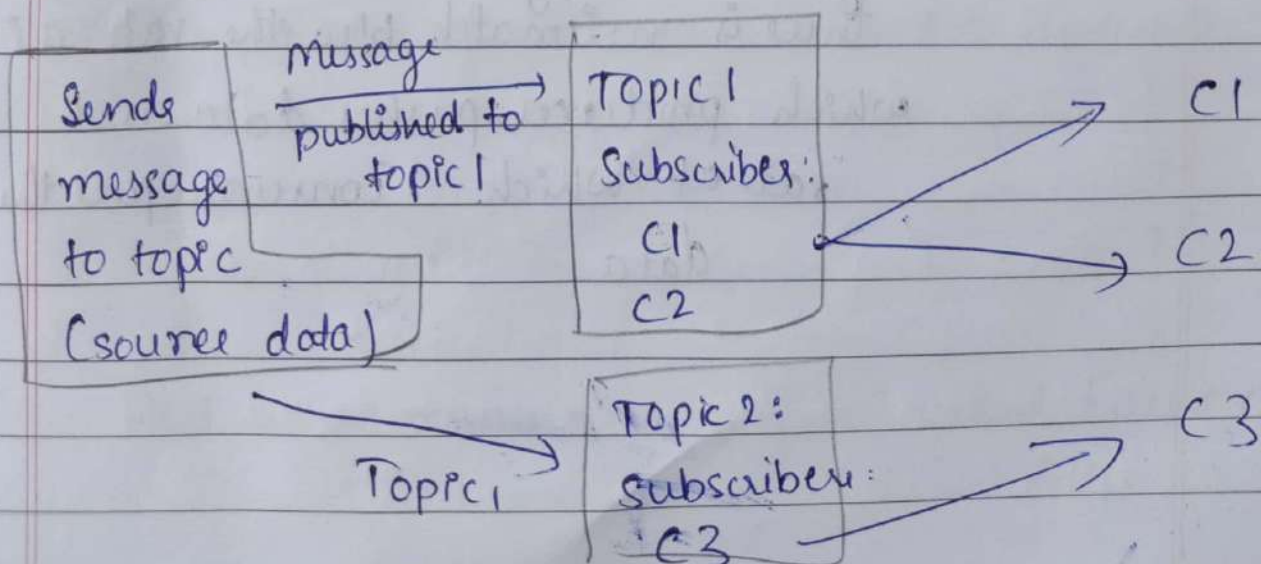 Sends
message
to topic
(source data)
message
published to
topic1
Topic1
Subscriber:
C1
C2
C1
C2
Topic1
Topic 2:
subscriber:
C3
C3